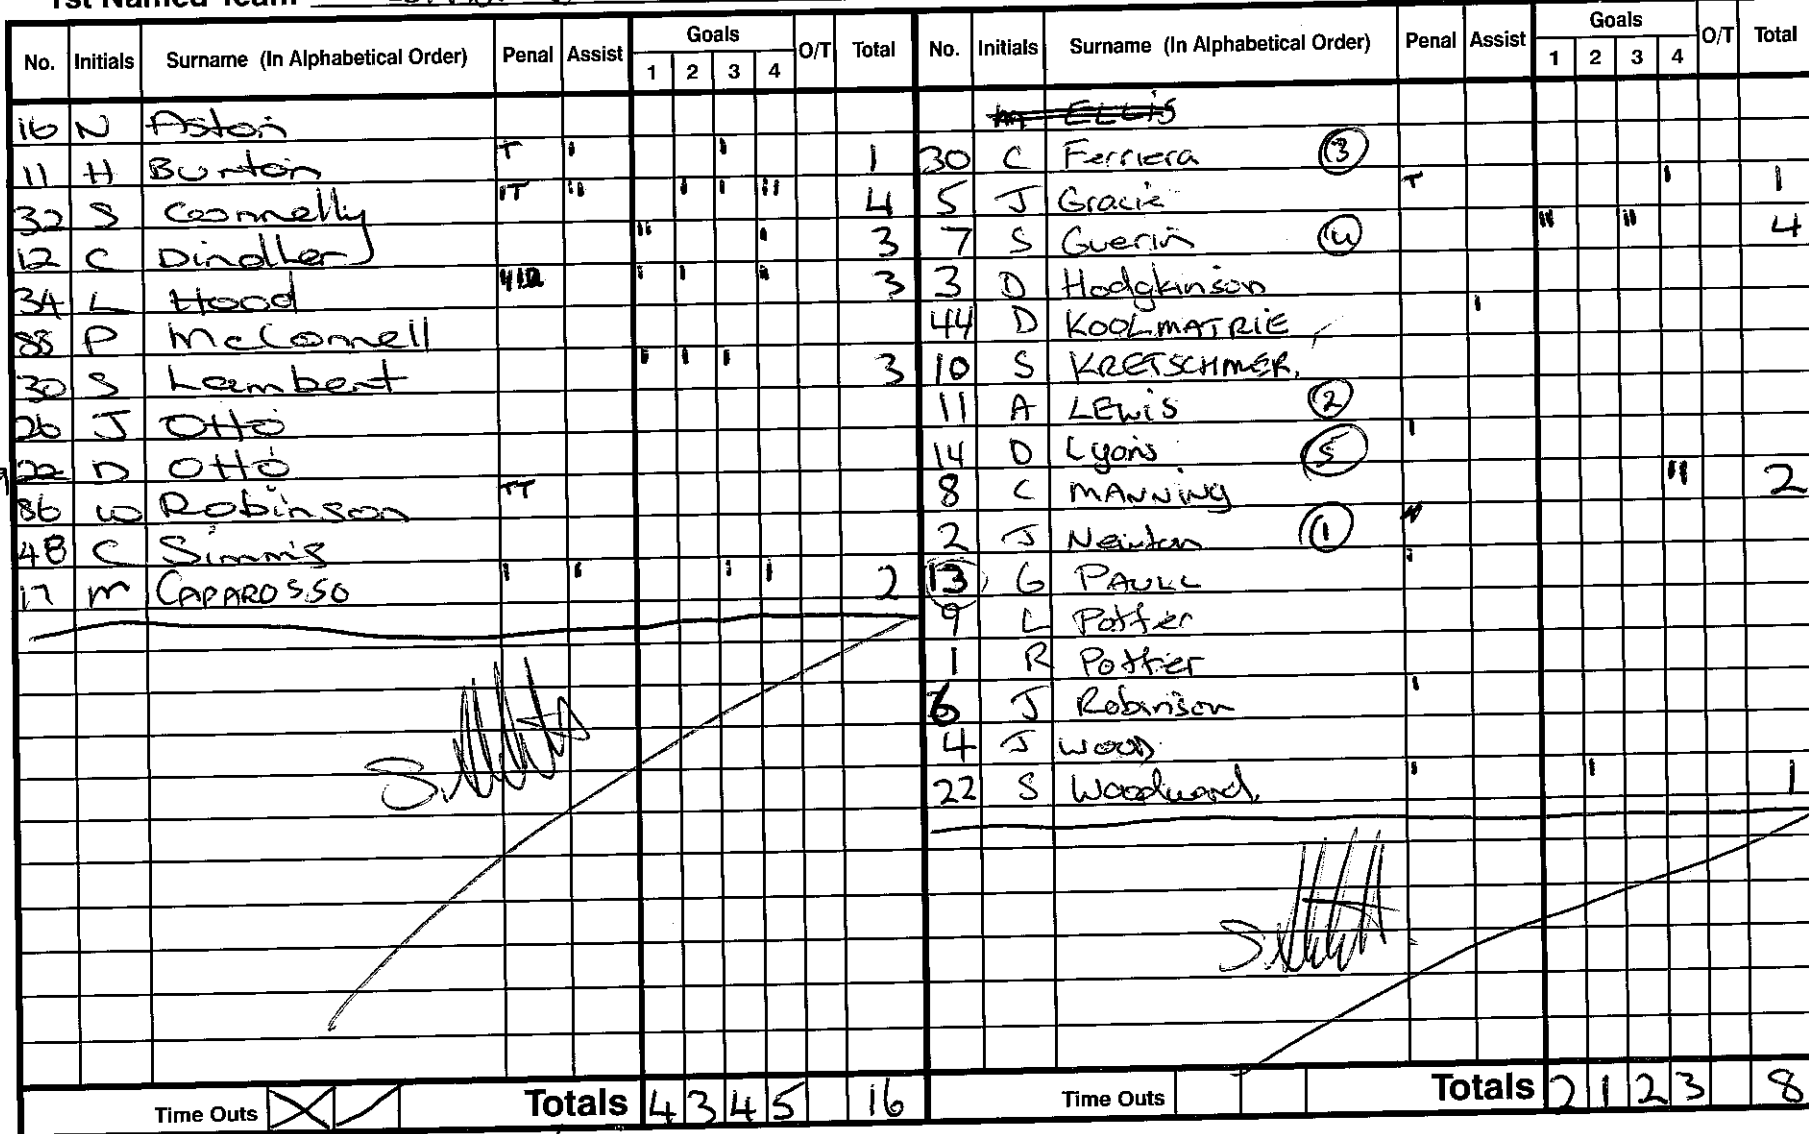 1st Named Team
No. Initials Surname (In Alphabetical Order) Penal Assist Goals 1 2 3 4 O/T Total
16 N Aston
11 H Burton T ' ' 1
32 S Connelly 'T '' ' ' '' 4
12 C Dindler '' ' 3
34 L Hood ' ' ' 3
88 P McConnell
30 S Lambert ' ' ' 3
26 J Otto
22 D Otto
86 W Robinson TT
48 C Simms
17 M CAPAROSSO ' ' ' ' 2
Time Outs X / Totals 4 3 4 5 16
No. Initials Surname (In Alphabetical Order) Penal Assist Goals 1 2 3 4 O/T Total
M ELLIS
30 C Ferriera 3
5 J Gracie T ' 1
7 S Guerin 4 '' '' 4
3 D Hodgkinson
44 D KOOLMATRIE '
10 S KRETSCHMER.
11 A LEWIS 2
14 D Lyons 5 '
8 C MANNING '' 2
2 J Newton 1
13 G PAULL '
9 L Pottier
1 R Pottier
6 J Robinson '
4 J WOOD
22 S Woodward. ' ' 1
Time Outs Totals 2 1 2 3 8